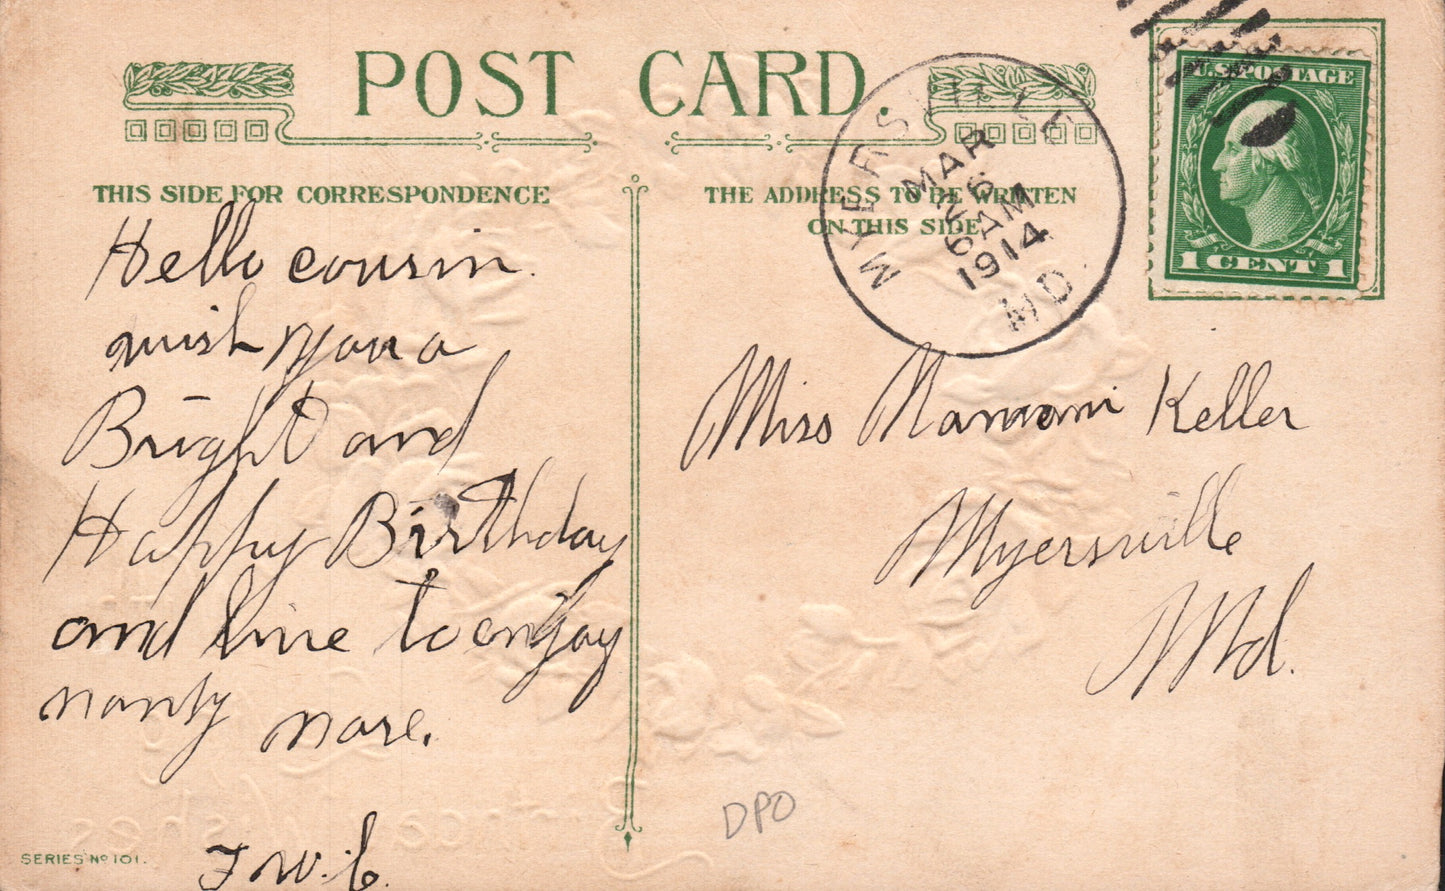 POST CARD.
THIS SIDE FOR CORRESPONDENCE
THE ADDRESS TO BE WRITTEN
ON THIS SIDE
MYERSVILLE
MAR
26
6 AM
1914
MD.
U.S. POSTAGE
1 CENT 1
Hello cousin.
wish you a
Bright and
Happy Birthday
and live to enjoy
manty more.
F W. C.
Miss Naomi Keller
Myersville
Md.
DPO
SERIES No 101.
Wishes